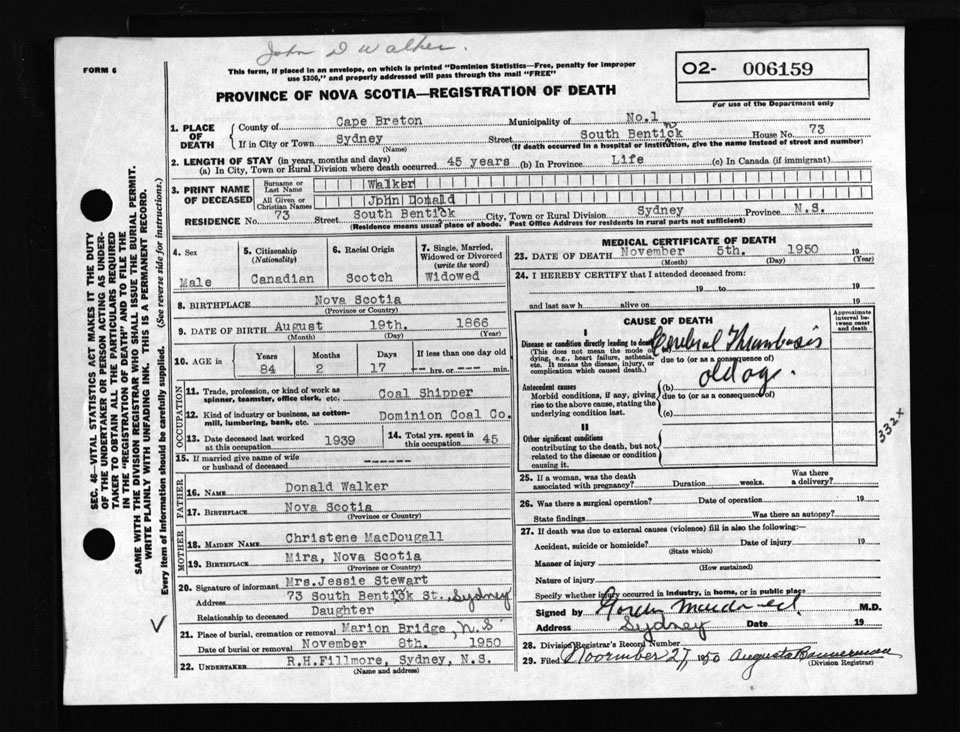 John D Walker.
FORM 6
This form, if placed in an envelope, on which is printed "Dominion Statistics—Free, penalty for improper
use $300," and properly addressed will pass through the mail "FREE"
O2- 006159
For use of the Department only
PROVINCE OF NOVA SCOTIA—REGISTRATION OF DEATH
1. PLACE OF DEATH
County of Cape Breton Municipality of No.1
If in City or Town Sydney Street South Bentick House No. 73
(Name) (If death occurred in a hospital or institution, give the name instead of street and number)
2. LENGTH OF STAY (in years, months and days)
(a) In City, Town or Rural Division where death occurred 45 years (b) In Province Life (c) In Canada (if immigrant)
3. PRINT NAME OF DECEASED
Surname or Last Name Walker
All Given or Christian Names John Donald
RESIDENCE No. 73 Street South Bentick City, Town or Rural Division Sydney Province N.S.
(Residence means usual place of abode. Post Office Address for residents in rural parts not sufficient)
4. Sex Male
5. Citizenship (Nationality) Canadian
6. Racial Origin Scotch
7. Single, Married, Widowed or Divorced (write the word) Widowed
8. BIRTHPLACE Nova Scotia
(Province or Country)
9. DATE OF BIRTH August 19th. 1866
(Month) (Day) (Year)
10. AGE in Years 84 Months 2 Days 17 If less than one day old -- hrs. or -- min.
OCCUPATION
11. Trade, profession, or kind of work as
spinner, teamster, office clerk, etc. Coal Shipper
12. Kind of industry or business, as cotton-
mill, lumbering, bank, etc. Dominion Coal Co.
13. Date deceased last worked
at this occupation 1939
14. Total yrs. spent in
this occupation 45
15. If married give name of wife
or husband of deceased ------
FATHER
16. NAME Donald Walker
17. BIRTHPLACE Nova Scotia
(Province or Country)
MOTHER
18. MAIDEN NAME Christene MacDougall
19. BIRTHPLACE Mira, Nova Scotia
(Province or Country)
20. Signature of informant Mrs.Jessie Stewart
Address 73 South Bentick St., Sydney
Relationship to deceased Daughter
21. Place of burial, cremation or removal Marion Bridge, N.S
Date of burial or removal November 8th. 1950
22. UNDERTAKER R.H.Fillmore, Sydney, N.S.
(Name and address)
MEDICAL CERTIFICATE OF DEATH
23. DATE OF DEATH November 5th. 1950 19
(Month) (Day) (Year)
24. I HEREBY CERTIFY that I attended deceased from:
19 to 19
and last saw h alive on 19
CAUSE OF DEATH
Approximate interval between onset and death
I
Disease or condition directly leading to death Cerebral Thrombosis
(This does not mean the mode of
dying, e.g., heart failure, asthenia,
etc. It means the disease, injury, or
complication which caused death.)
due to (or as a consequence of)
Antecedent causes (b) old age.
Morbid conditions, if any, giving
rise to the above cause, stating the
underlying condition last.
due to (or as a consequence of)
(c)
II
Other significant conditions
contributing to the death, but not
related to the disease or condition
causing it.
332X
25. If a woman, was the death
associated with pregnancy? Duration weeks. Was there
a delivery?
26. Was there a surgical operation? Date of operation 19
State findings Was there an autopsy?
27. If death was due to external causes (violence) fill in also the following:—
Accident, suicide or homicide? Date of injury 19
(State which)
Manner of injury
(How sustained)
Nature of injury
Specify whether injury occurred in industry, in home, or in public place
Signed by M.D.
Address Sydney Date 19
28. Division Registrar's Record Number
29. Filed November 27 1950 Augusta Bannerman
(Division Registrar)
SEC. 46—VITAL STATISTICS ACT MAKES IT THE DUTY
OF THE UNDERTAKER OR PERSON ACTING AS UNDER-
TAKER TO OBTAIN ALL THE PARTICULARS REQUIRED
IN THE "REGISTRATION OF DEATH" AND TO FILE THE
SAME WITH THE DIVISION REGISTRAR WHO SHALL ISSUE THE BURIAL PERMIT.
WRITE PLAINLY WITH UNFADING INK. THIS IS A PERMANENT RECORD.
Every item of information should be carefully supplied. (See reverse side for instructions.)